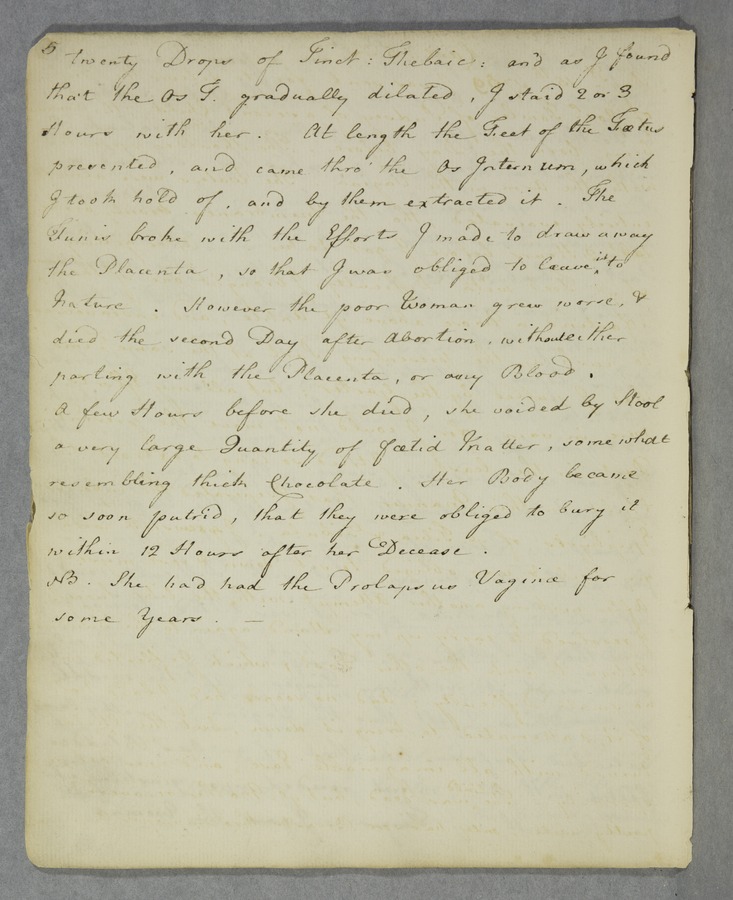 5 twenty Drops of Tinct: Thebaic: and as I found
that the Os T. gradually dilated, I staid 2 or 3
Hours with her. At length the Feet of the Fœtus
presented, and came thro' the Os Internum, which
I took hold of, and by them extracted it. The
Funis broke with the Efforts I made to draw away
the Placenta, so that I was obliged to leave it to
Nature. However the poor Woman grew worse, &
died the second Day after Abortion, without either
parting with the Placenta, or any Blood.
A few Hours before she died, she voided by Stool
a very large Quantity of fœtid Matter, somewhat
resembling thick Chocolate. Her Body became
so soon putrid, that they were obliged to bury it
within 12 Hours after her Decease.
NB. She had had the Prolapsus Vaginæ for
some Years. —